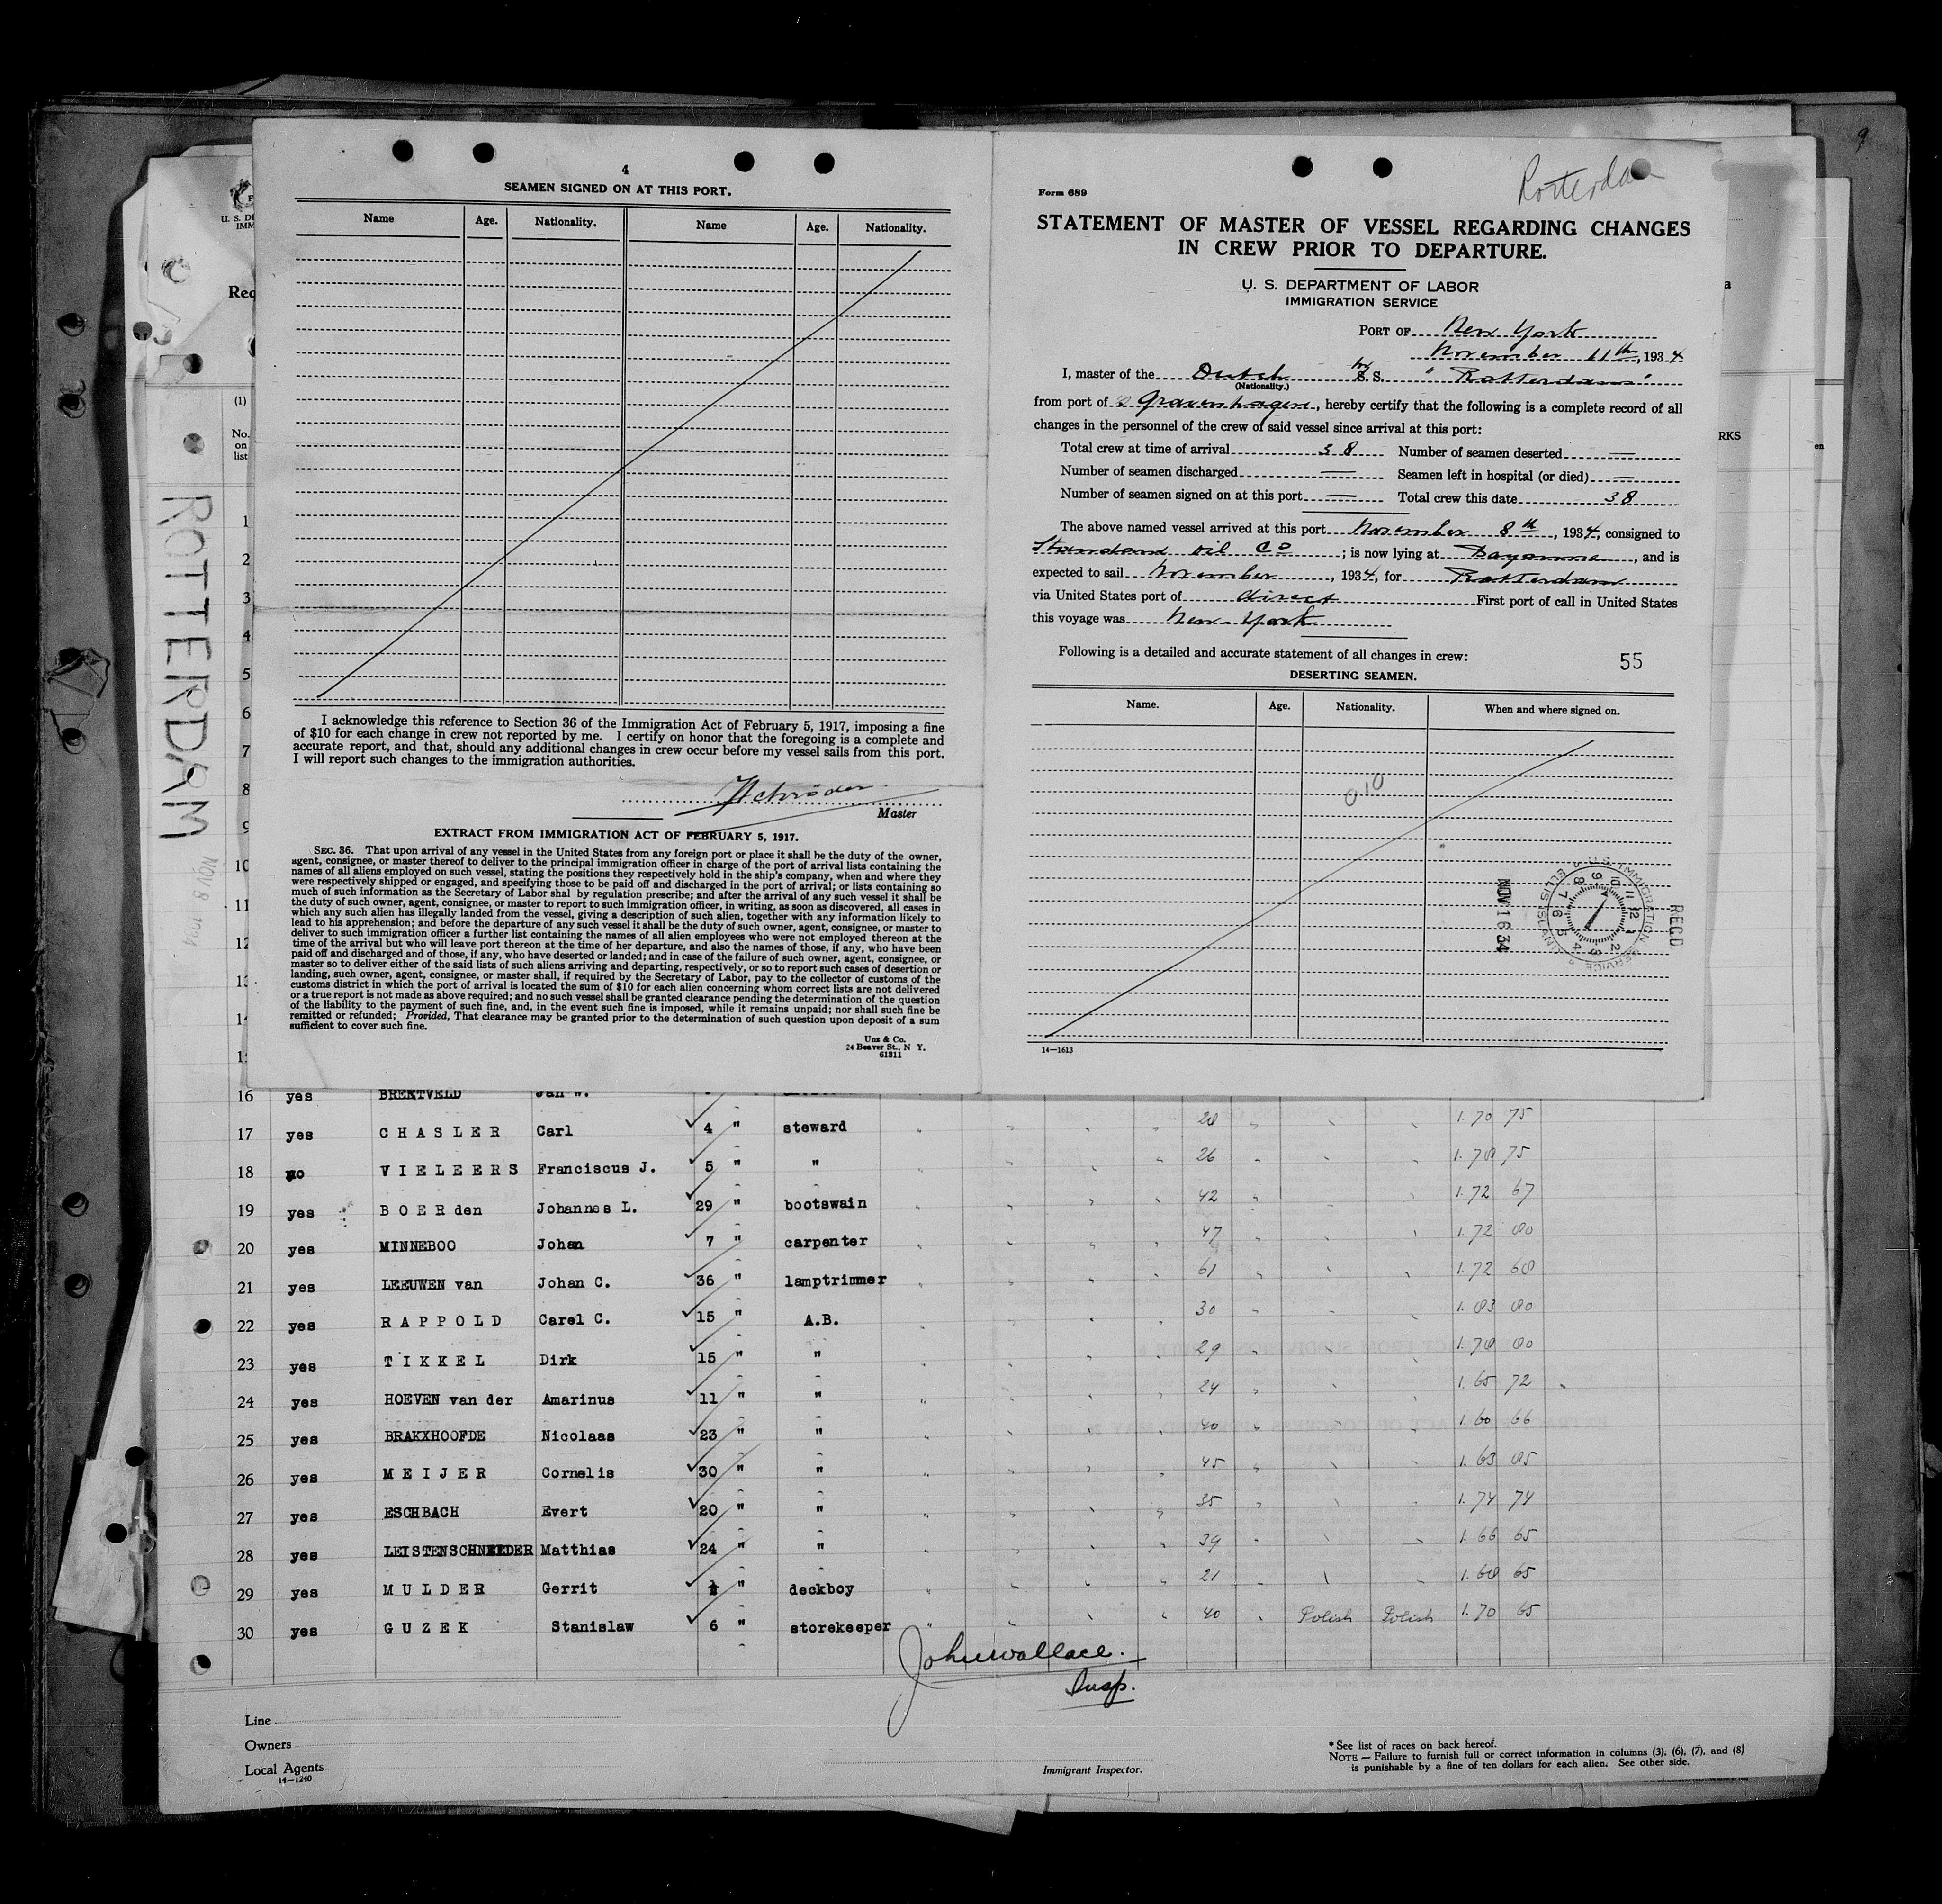 9
4
SEAMEN SIGNED ON AT THIS PORT.
Name Age. Nationality. Name Age. Nationality.
I acknowledge this reference to Section 36 of the Immigration Act of February 5, 1917, imposing a fine
of $10 for each change in crew not reported by me. I certify on honor that the foregoing is a complete and
accurate report, and that, should any additional changes in crew occur before my vessel sails from this port,
I will report such changes to the immigration authorities.
Schröder
Master
EXTRACT FROM IMMIGRATION ACT OF FEBRUARY 5, 1917.
SEC. 36. That upon arrival of any vessel in the United States from any foreign port or place it shall be the duty of the owner,
agent, consignee, or master thereof to deliver to the principal immigration officer in charge of the port of arrival lists containing the
names of all aliens employed on such vessel, stating the positions they respectively hold in the ship's company, when and where they
were respectively shipped or engaged, and specifying those to be paid off and discharged in the port of arrival; or lists containing so
much of such information as the Secretary of Labor shal by regulation prescribe; and after the arrival of any such vessel it shall be
the duty of such owner, agent, consignee, or master to report to such immigration officer, in writing, as soon as discovered, all cases in
which any such alien has illegally landed from the vessel, giving a description of such alien, together with any information likely to
lead to his apprehension; and before the departure of any such vessel it shall be the duty of such owner, agent, consignee, or master to
deliver to such immigration officer a further list containing the names of all alien employees who were not employed thereon at the
time of the arrival but who will leave port thereon at the time of her departure, and also the names of those, if any, who have been
paid off and discharged and of those, if any, who have deserted or landed; and in case of the failure of such owner, agent, consignee, or
master so to deliver either of the said lists of such aliens arriving and departing, respectively, or so to report such cases of desertion or
landing, such owner, agent, consignee, or master shall, if required by the Secretary of Labor, pay to the collector of customs of the
customs district in which the port of arrival is located the sum of $10 for each alien concerning whom correct lists are not delivered
or a true report is not made as above required; and no such vessel shall be granted clearance pending the determination of the question
of the liability to the payment of such fine, and, in the event such fine is imposed, while it remains unpaid; nor shall such fine be
remitted or refunded; Provided, That clearance may be granted prior to the determination of such question upon deposit of a sum
sufficient to cover such fine.
Unz & Co.
24 Beaver St., N Y.
61311
Rotterda
Form 689
STATEMENT OF MASTER OF VESSEL REGARDING CHANGES
IN CREW PRIOR TO DEPARTURE.
U. S. DEPARTMENT OF LABOR
IMMIGRATION SERVICE
PORT OF New York
November 11th, 1934
I, master of the Dutch S. S. "Rotterdam"
(Nationality.)
from port of s Gravenhagen, hereby certify that the following is a complete record of all
changes in the personnel of the crew of said vessel since arrival at this port:
Total crew at time of arrival 38 Number of seamen deserted —
Number of seamen discharged — Seamen left in hospital (or died) —
Number of seamen signed on at this port — Total crew this date 38
The above named vessel arrived at this port November 8th, 1934, consigned to
Standard Oil Co; is now lying at Bayonne, and is
expected to sail November, 1934, for Rotterdam
via United States port of direct First port of call in United States
this voyage was New York
Following is a detailed and accurate statement of all changes in crew:
55
DESERTING SEAMEN.
Name. Age. Nationality. When and where signed on.
010
REC'D
U.S. IMMIGRATION SERVICE
ELLIS ISLAND
NOV 16 34
14—1613
ROTTERDAM
NOV 8 1934
(1)
No.
on
list
RKS
en
1
2
3
4
5
6
7
8
9
10
11
12
13
14
16 yes BREKTVELD Jan W.
17 yes CHASLER Carl 4 " steward 28 1.70 75
18 no VIELEERS Franciscus J. 5 " " 26 1.78 75
19 yes BOER den Johannes L. 29 " bootswain 42 1.72 67
20 yes MINNEBOO Johan 7 " carpenter 47 1.72 80
21 yes LEEUWEN van Johan C. 36 " lamptrimmer 61 1.72 68
22 yes RAPPOLD Carel C. 15 " A.B. 30 1.83 80
23 yes TIKKEL Dirk 15 " " 29 1.78 80
24 yes HOEVEN van der Amarinus 11 " " 24 1.65 72
25 yes BRAKXHOOFDE Nicolaas 23 " " 40 1.60 66
26 yes MEIJER Cornelis 30 " " 45 1.63 85
27 yes ESCHBACH Evert 20 " " 35 1.74 74
28 yes LEISTENSCHNEIDER Matthias 24 " " 39 1.66 65
29 yes MULDER Gerrit " deckboy 21 1.68 65
30 yes GUZEK Stanislaw 6 " storekeeper 40 Polish Polish 1.70 65
John Wallace.
Insp.
Line
Owners
Local Agents
14—1240
Immigrant Inspector.
* See list of races on back hereof.
NOTE — Failure to furnish full or correct information in columns (3), (6), (7), and (8)
is punishable by a fine of ten dollars for each alien. See other side.